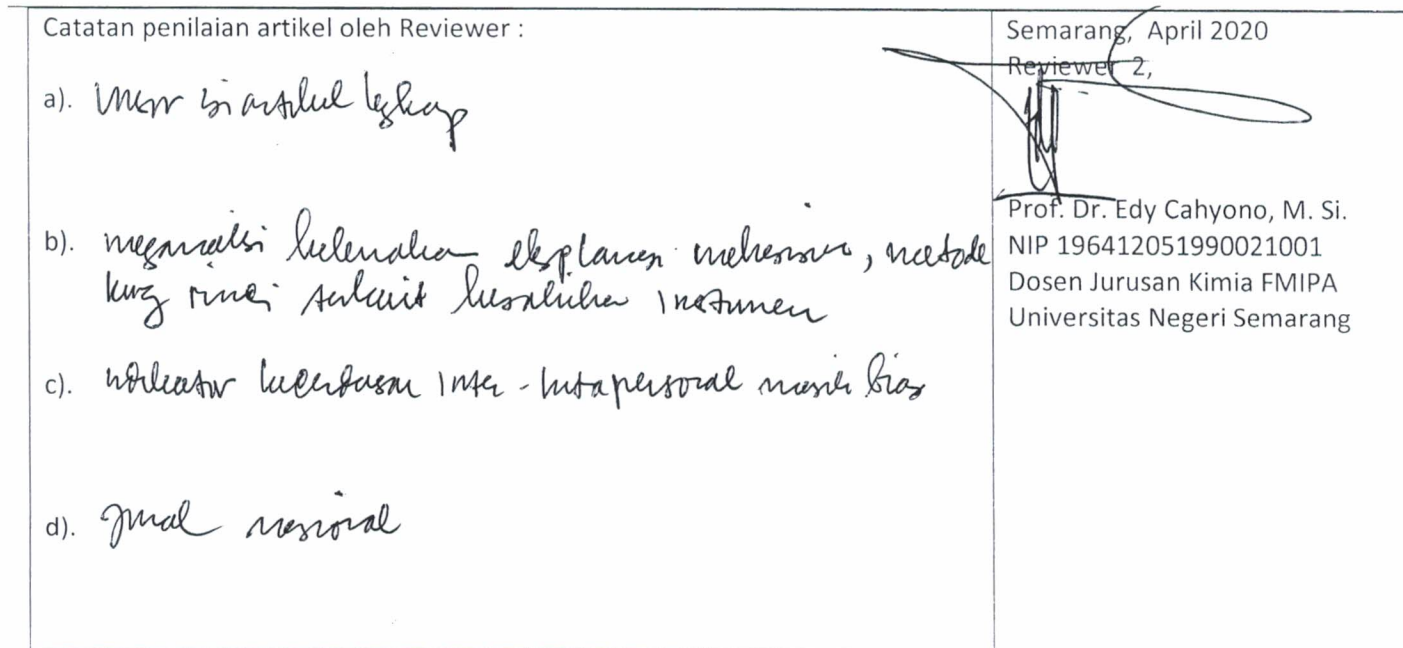 Catatan penilaian artikel oleh Reviewer :
a). Unsur isi artikel lengkap
b). eksplanasi, metode
kurg rinci terkait instrumen
c). indikator kecerdasan inter-intrapersonal masih bias
d). jurnal nasional
Semarang, April 2020
Reviewer 2,
Prof. Dr. Edy Cahyono, M. Si.
NIP 196412051990021001
Dosen Jurusan Kimia FMIPA
Universitas Negeri Semarang